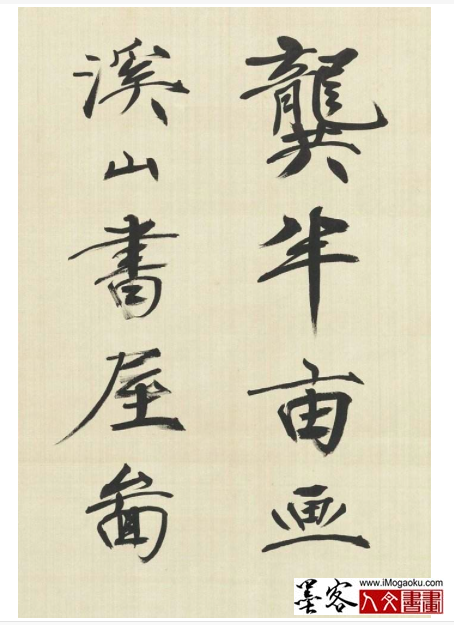 龔半亩画
溪山書屋啚
墨客
www.iMogaoku.com
人文書畫